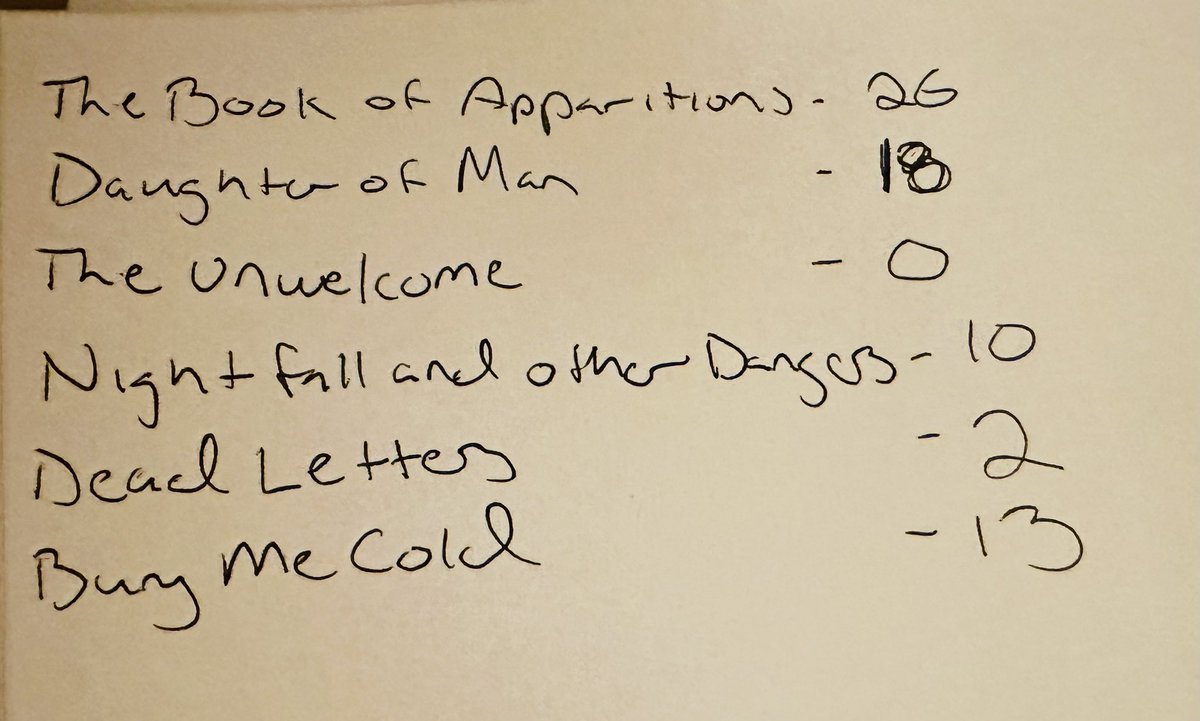 The Book of Apparitions - 26
Daughter of Man - 18
The Unwelcome - 0
Nightfall and other Dangers - 10
Dead Letters - 2
Bury Me Cold - 13